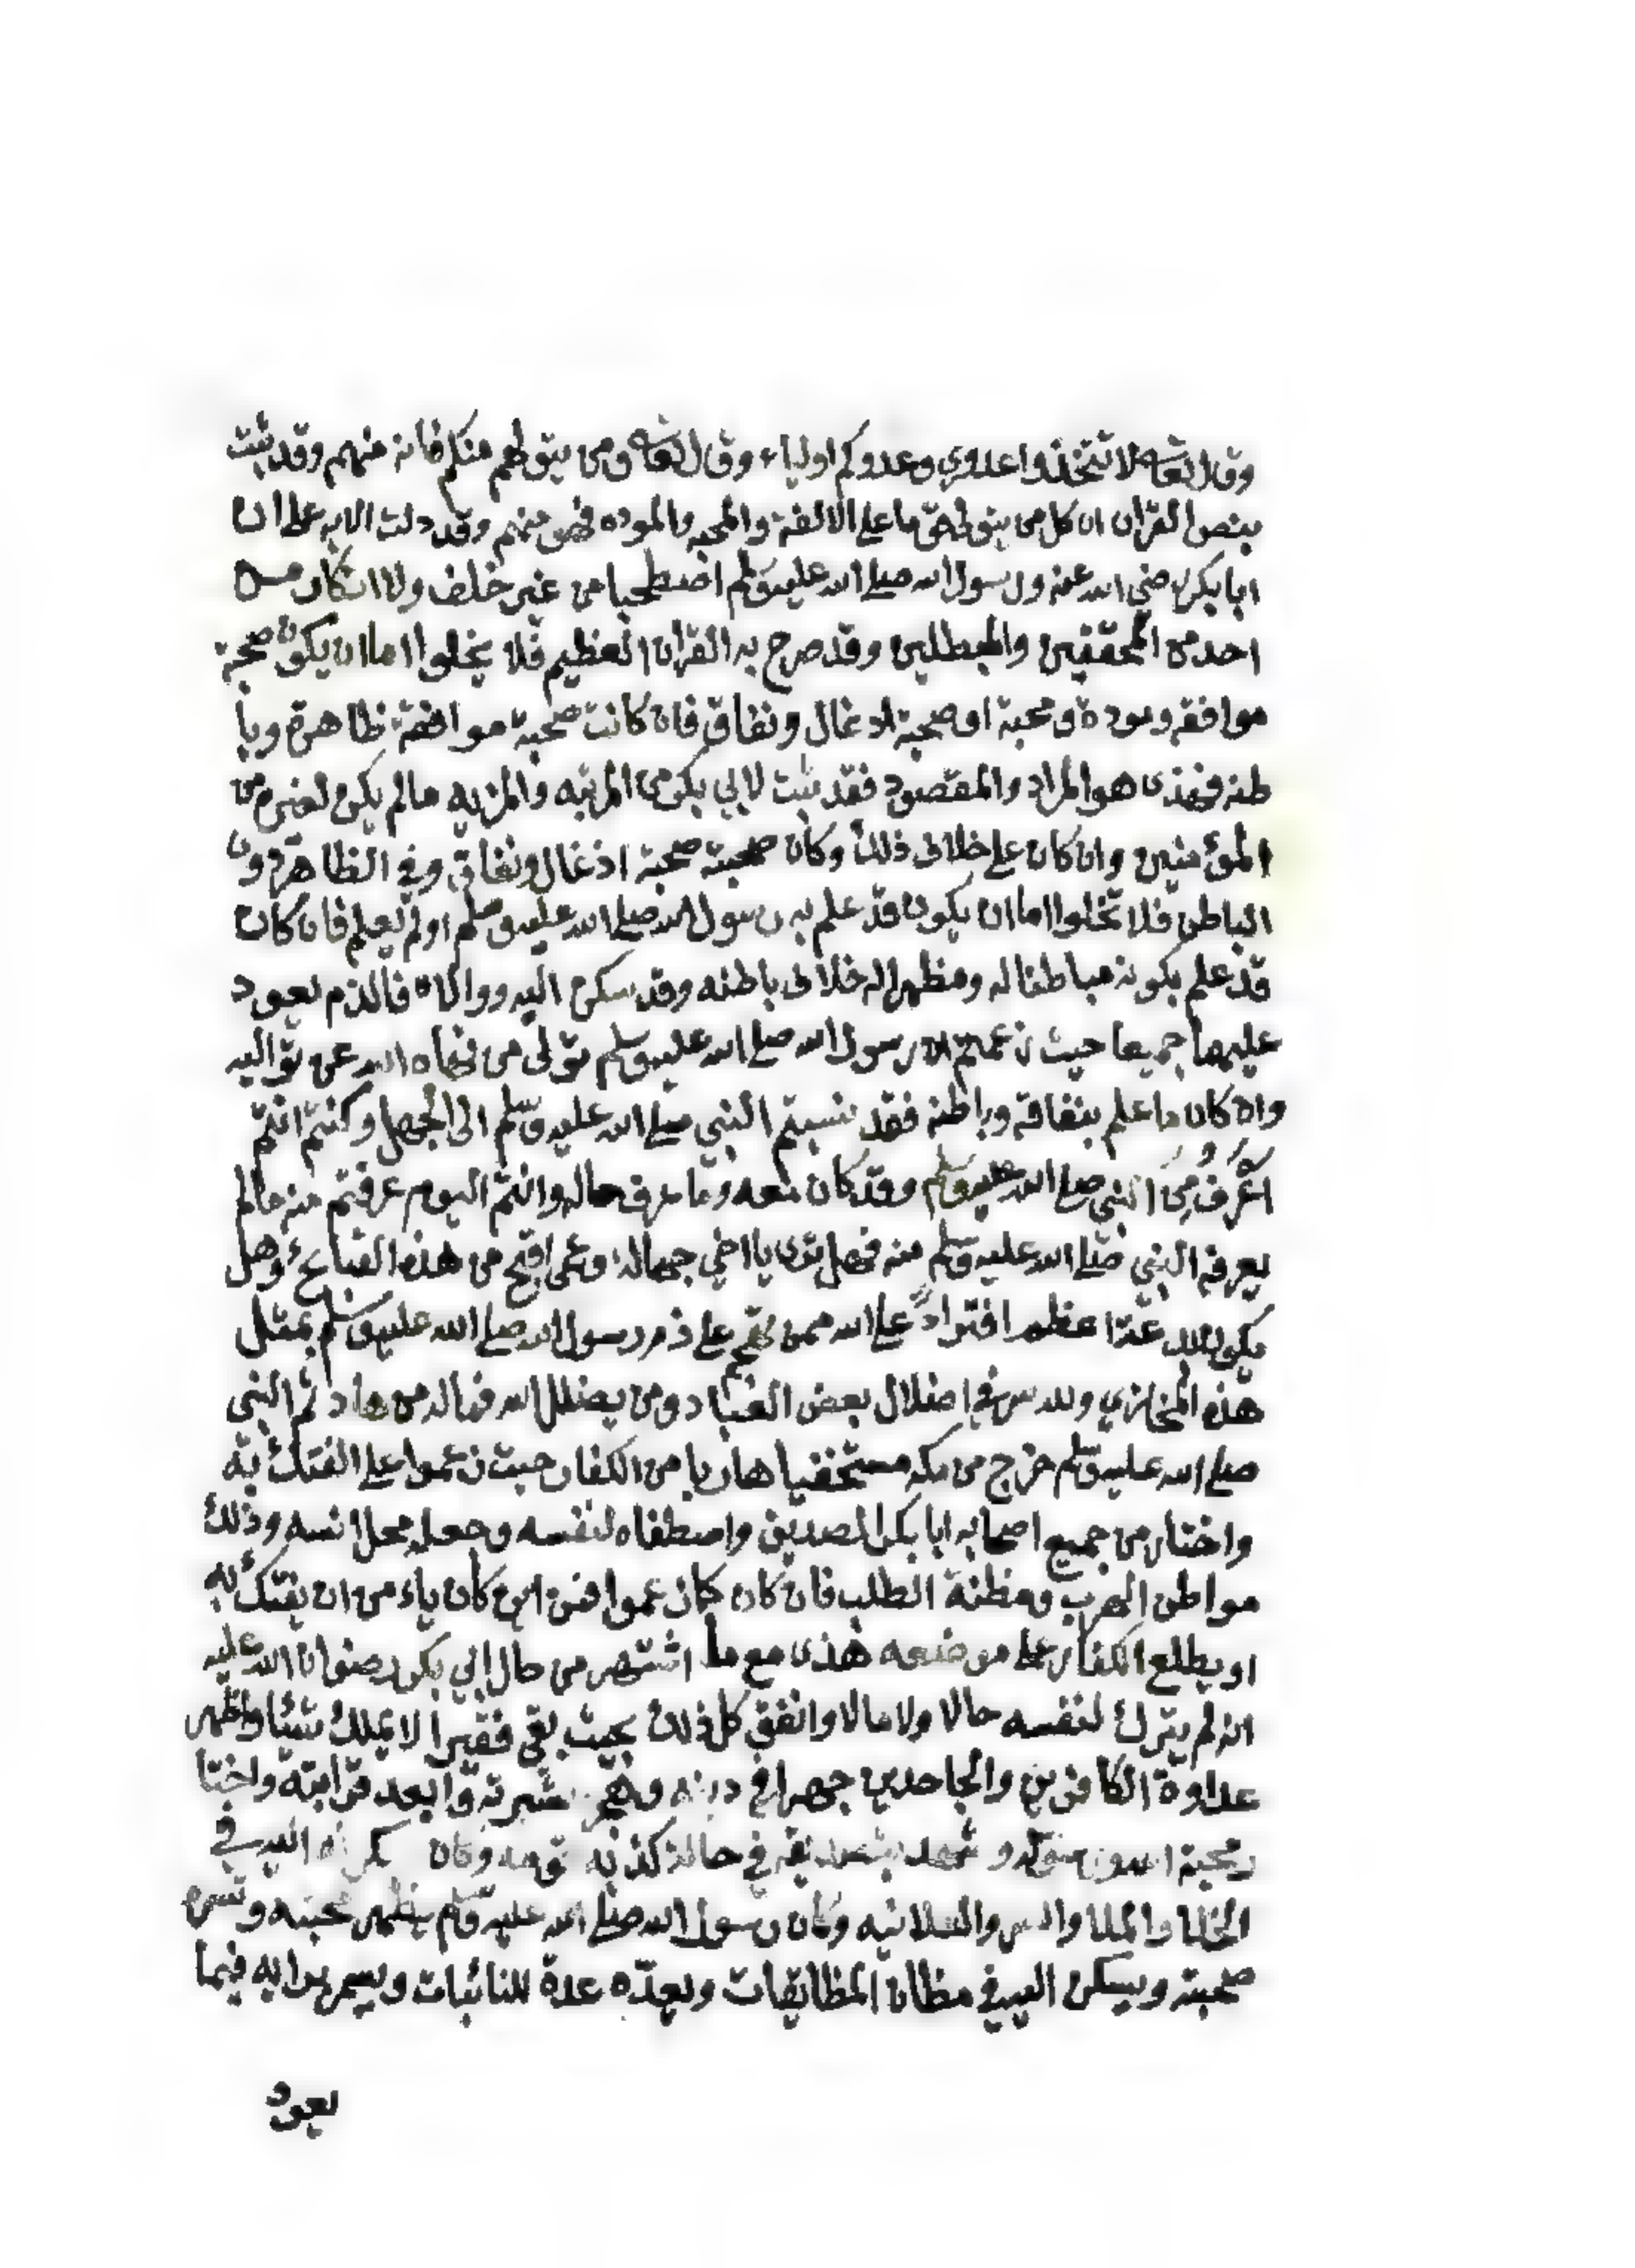 وقال تعالى لا تتخذوا عدوي وعدوكم اولياء وقال تعالى ومن يتولهم منكم فانه منهم وقد ثبت
بنص القران ان كل من يتولى قوما على الالفة والمحبه والموده فهو منهم وقد دلت الايه على ان
ابا بكر رضي الله عنه ورسول الله صلى الله عليه وسلم اصطحبا من غير خلف ولا انكار من
احد من المحققين والمبطلين وقد صرح به القران العظيم فلا يخلوا اما ان يكون صحبة
موافقه ومودة ومحبة او صحبة ادغال ونفاق فان كانت صحبة موافقة ظاهرة وبا
طنه فهذى هو المراد والمقصود فقد ثبت لابي بكر من المرتبه والمزيه مالم يكن لغيره من
المؤمنين وان كان على خلافى ذلك وكان صحبته صحبة ادغال ونفاق وفي الظاهر دون
الباطن فلا تخلوا اما ان يكون قد علم به رسول الله صلى الله عليه وسلم اولم يعلم فان كان
قد علم بكونه مباطنا له ومظهرا له خلافى باطنه وقد سكن اليه ووالاه فالذم يعود
عليهما جميعا حيث زعمتم ان رسول الله صلى الله عليه وسلم تولى من نهاه الله عن تواليه
وان كان ما علم بنفاقه وباطنه فقد نسبتم النبي صلى الله عليه وسلم الى الجهل وكنتم انتم
اعرف من النبي صلى الله عليه وسلم وقد كان معه وما عرف حاله وانتم اليوم عرفتم منه مالم
يعرفه النبي صلى الله عليه وسلم منه فهل ترى يا اخي جهالة وعمى اقبح من هذه القبائح وهل
يكون لله عدا اعظم افتراد على الله ممن على ذم رسول الله صلى الله عليه وسلم بمثل
هذه المخازي ولله سر في اضلال بعض العباد ومن يضلل الله فماله من هاد ثم النبي
صلى الله عليه وسلم خرج من مكه مستخفيا هاربا من الكفار حيث زعموا على الفتك به
واختار من جميع اصحابه ابا بكر الصديق واصطفاه لنفسه وجعله محل انسه وذلك
مواطن الهرب ومظنة الطلب فان كان كان كان ياءمن ان يفتك به
او يطلع الكفار على موضعه هذى مع ما اشتهر من حال ابي بكر رضوان الله عليه
انه لم يترك لنفسه حالا ولا مالا وانفق كل ذلك بحيث بقي فقيرا لا يملك شيئا واظهر
عداوة الكافرين والجاحدين جهرا في دينه وهجر عشيرته وابعد قرابته واختا
ر محبة الله ورسوله وشهد بتصديقه في حالة كذبه قومه وكان اليه في
الخلا والملا والسر والعلانيه وكان رسول الله صلى الله عليه وسلم يظهر محبته و
صحبته ويسكن اليه في مظان المظايقات ويعده عدة للنائبات ويسر برايه فيما
يعود